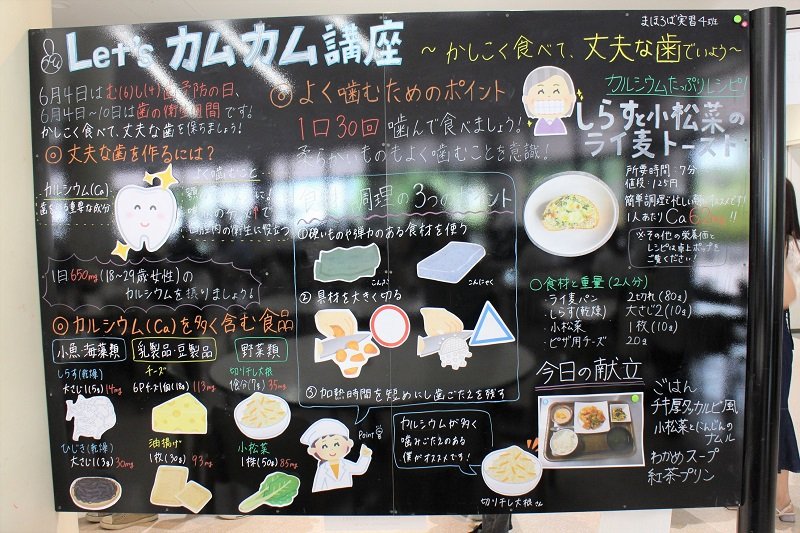 まほろば実習4班
Let's カムカム講座
～かしこく食べて、丈夫な歯でいよう～
6月4日はむ(6)し(4)歯予防の日、
6月4日～10日は歯の衛生週間です!
かしこく食べて、丈夫な歯を保ちましょう!
◎丈夫な歯を作るには?
カルシウム(Ca)
歯を作る重要な成分
よく噛むこと
口腔内の衛生に役立つ
1日650mg(18~29歳女性)の
カルシウムを摂りましょう!
◎カルシウム(Ca)を多く含む食品
小魚、海藻類
しらす(乾燥)
大さじ1(5g) 14mg
ひじき(乾燥)
大さじ1(3g) 30mg
乳製品・豆製品
チーズ
6Pチーズ1個(18g) 113mg
油揚げ
1枚(30g) 93mg
野菜類
切り干し大根
1食分(7g) 35mg
小松菜
1株(50g) 85mg
◎よく噛むためのポイント
1口30回 噛んで食べましょう!
柔らかいものもよく噛むことを意識!
調理の3つのポイント
①硬いものや弾力のある食材を使う
こんぶ
こんにゃく
②具材を大きく切る
③加熱時間を短めにし歯ごたえを残す
Point!
カルシウムが多く
噛みごたえのある
僕がオススメです!
切り干し大根さん
カルシウムたっぷりレシピ!
しらすと小松菜の
ライ麦トースト
所要時間:7分
値段:125円
簡単調理で忙しい朝にオススメです!
1人あたりCa
※その他の栄養価と
レシピは卓上ポップを
ご覧ください!
○食材と重量(2人分)
・ライ麦パン 2切れ(80g)
・しらす(乾燥) 大さじ2(10g)
・小松菜 1枚(10g)
・ピザ用チーズ 20g
今日の献立
ごはん
チキ厚タカルビ風
小松菜とにんじんの
ナムル
わかめスープ
紅茶プリン